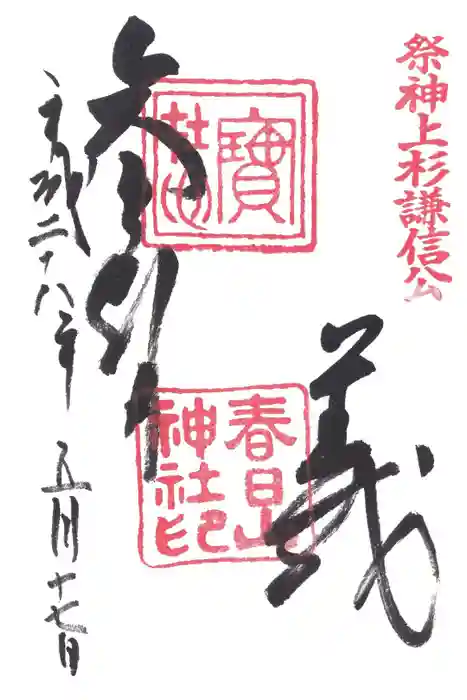 祭神上杉謙信公
義
寶
春日山
神社印
平成二十八年 五月十七日